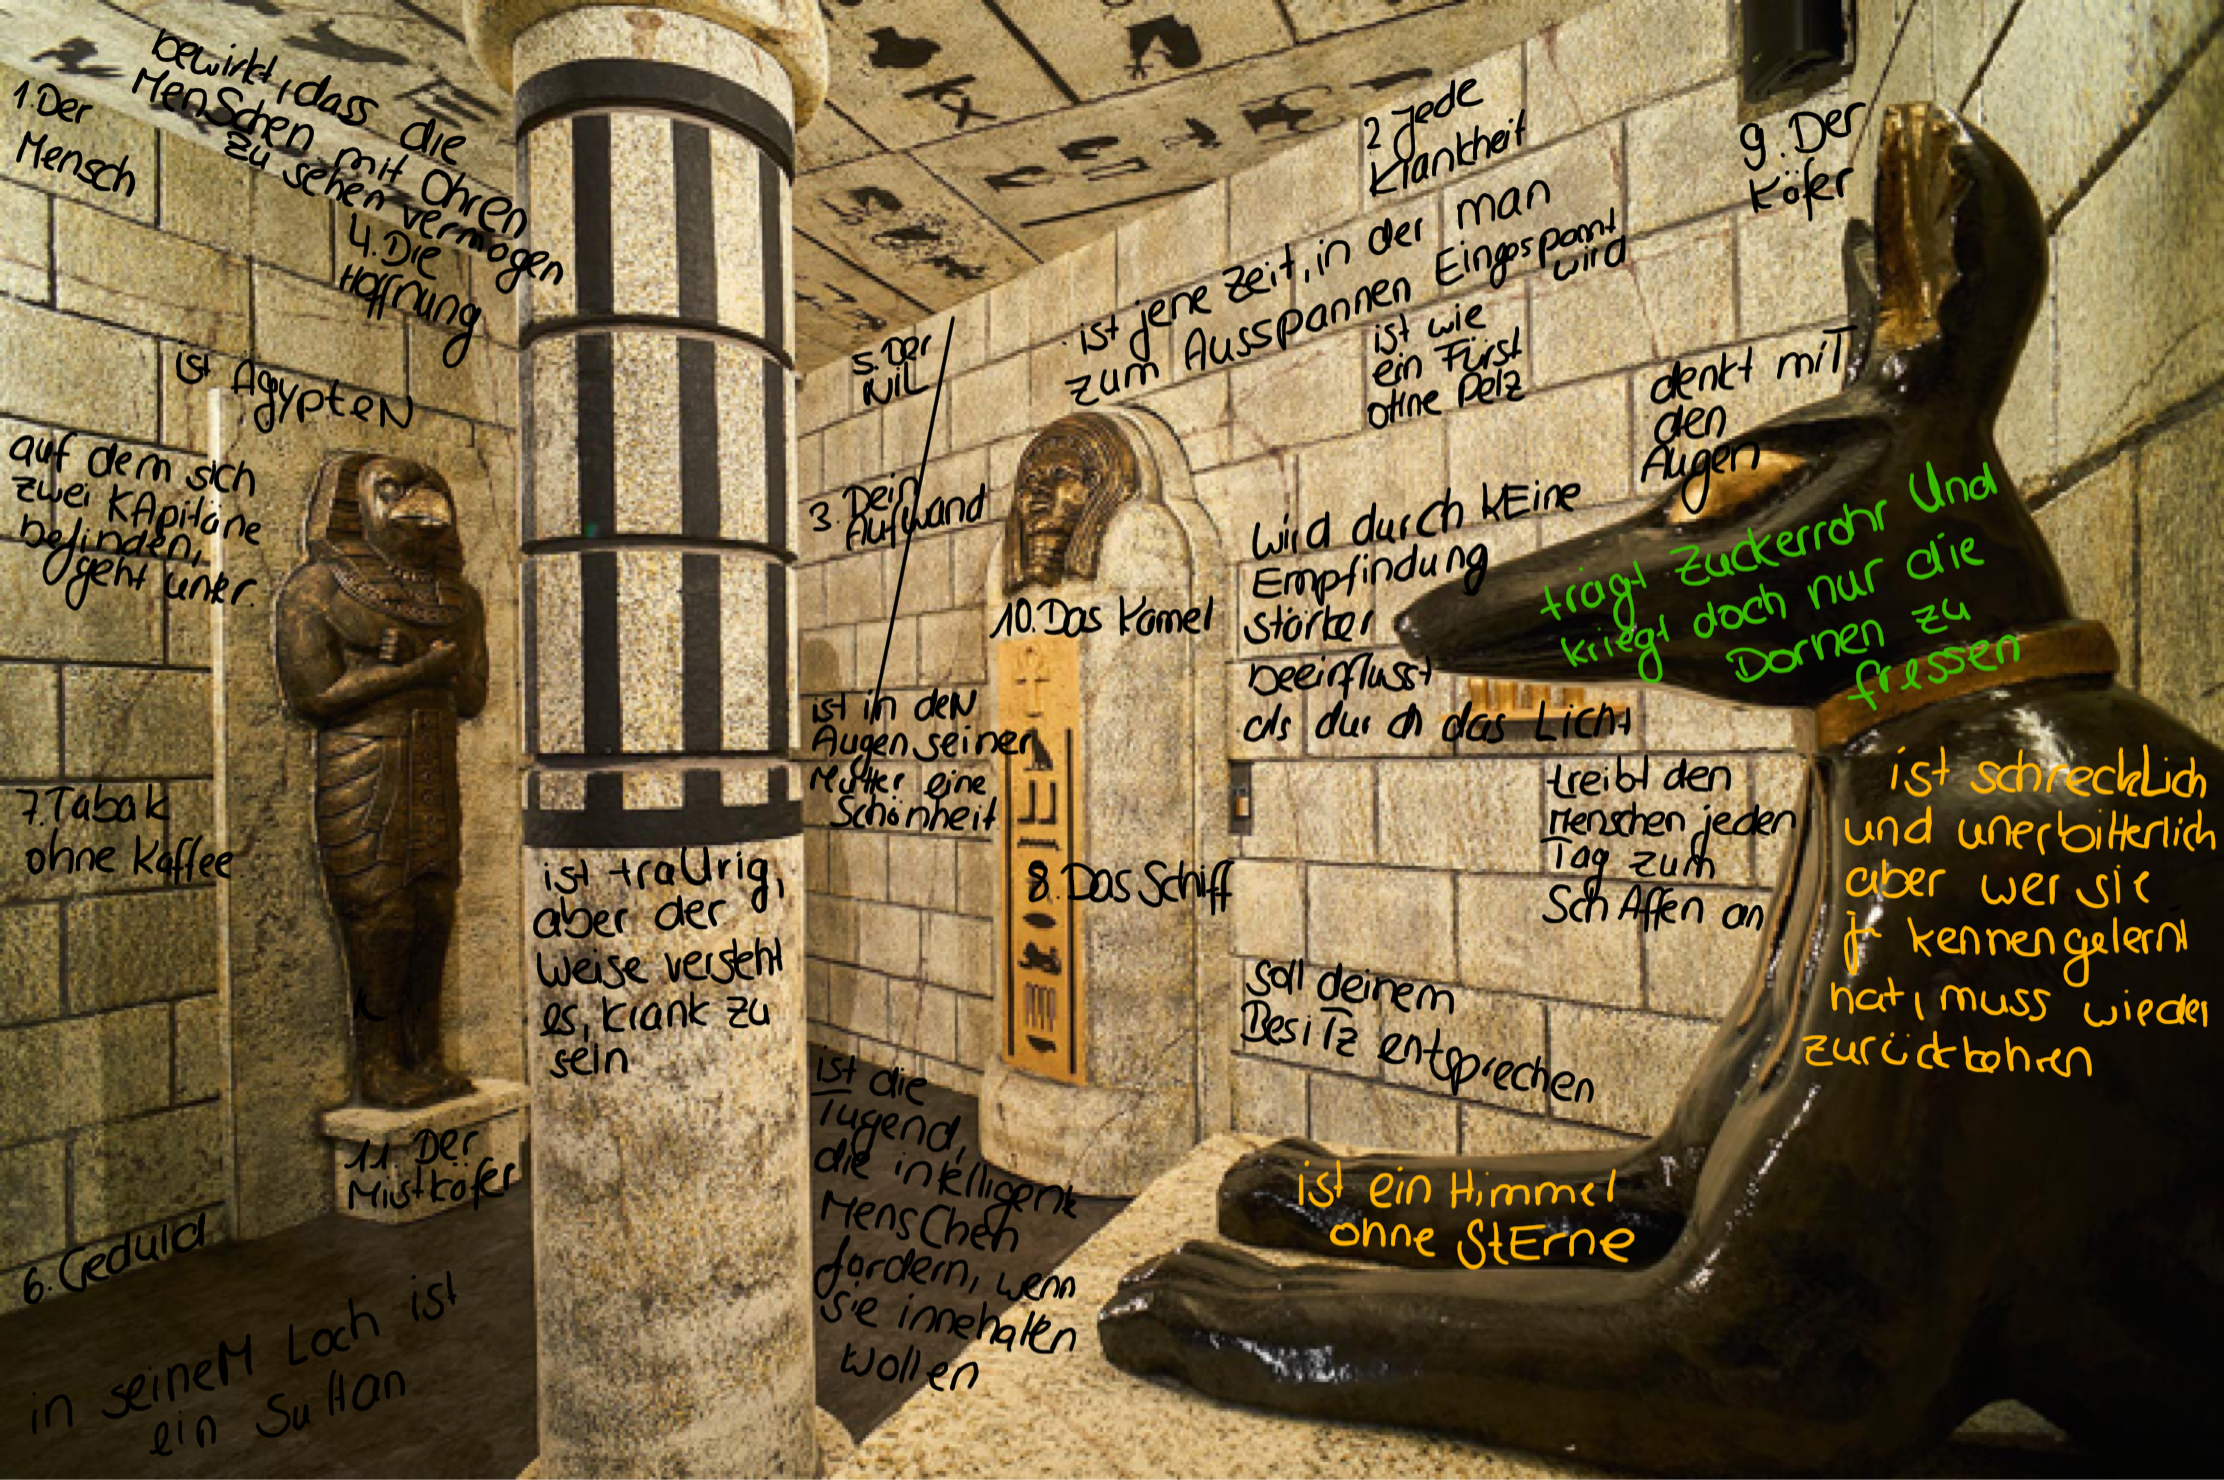 1. Der
Mensch
bewirkt, dass die
MenSchen mit Ohren
zu sehen vermögen
4. Die
Hoffnung
ist ÄgypteN
auf dem sich
zwei KApitäne
befinden,
geht unter.
7. Tabak
ohne Kaffee
11. Der
Mistkäfer
6. Geduld
in seineM Loch ist
ein Sultan
ist traUrig,
aber der
Weise versteht
es, krank zu
sein
5. Der
NiL
3. Dein
Aufwand
ist in deN
Augen seiner
Mutter eine
Schönheit
ist die
Tugend,
die intelligente
MensChen
fordern, wenn
sie innehalten
wollen
2 Jede
Krankheit
ist jene Zeit, in der man
zum Ausspannen Eingespannt
wird
ist wie
ein Fürst
ohne Pelz
9. Der
Käfer
denkt miT
den
Augen
10. Das Kamel
wird durch kEine
Empfindung
stärker
beeinflusst
als durch das Licht
8. Das Schiff
treibt den
Menschen jeden
Tag zum
SchAffen an
soll deinem
BesiTz entsprechen
trägt Zuckerrohr Und
kriegt doch nur die
Dornen zu
fressen
ist schreckLich
und unerbitterlich
aber wer sie
kennengelernt
hat, muss wieder
zurückkehren
ist ein Himmel
ohne StErne